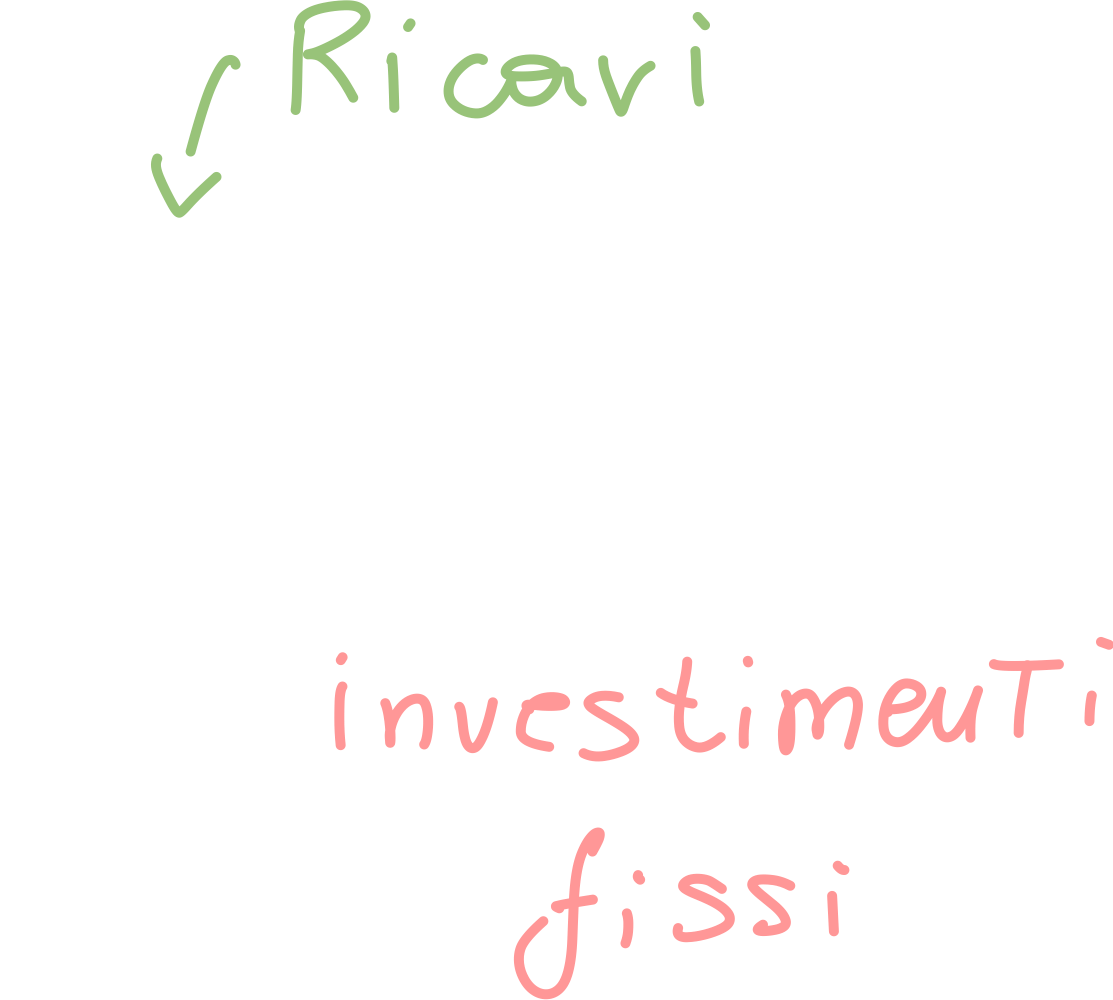 Ricavi
investimenti
fissi